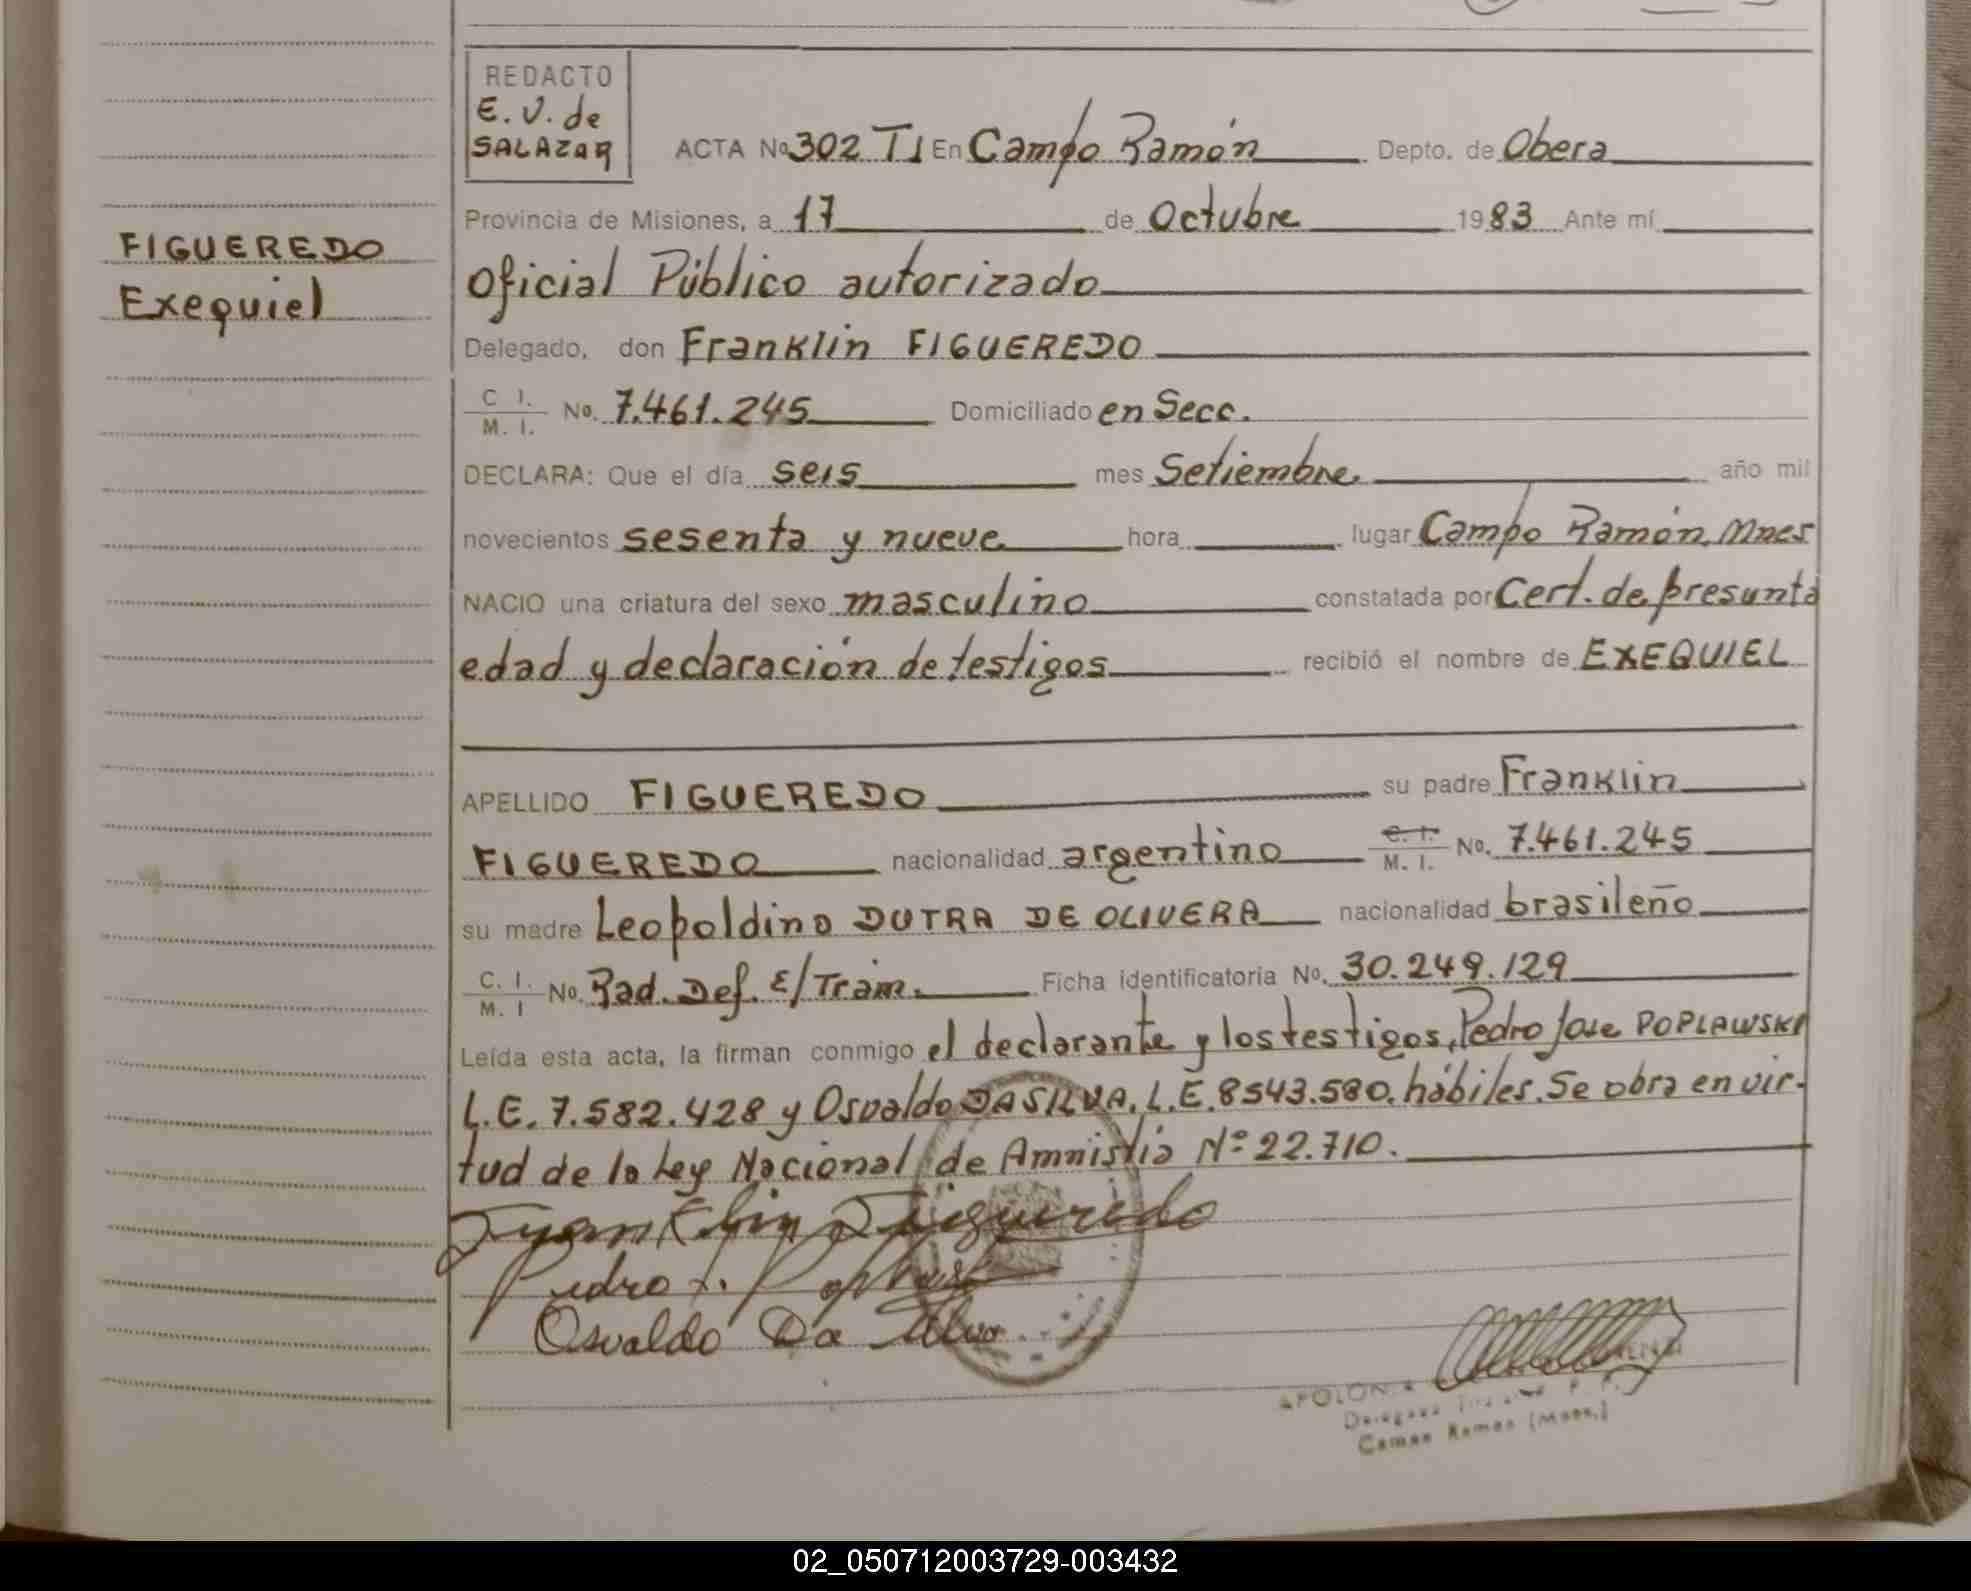 REDACTO
E. V. de
SALAZAR
ACTA No 302 TI En Campo Ramón Depto. de Obera
Provincia de Misiones, a 17 de Octubre 1983 Ante mí
Oficial Público autorizado
Delegado, don Franklin FIGUEREDO
C I. / M. I. No. 7.461.245 Domiciliado en Secc.
DECLARA: Que el día seis mes Setiembre. año mil
novecientos sesenta y nueve hora lugar Campo Ramón, Mnes
NACIO una criatura del sexo masculino constatada por Cert. de presunta
edad y declaración de testigos recibió el nombre de EXEQUIEL
APELLIDO FIGUEREDO su padre Franklin
FIGUEREDO nacionalidad argentino C. I. / M. I. No. 7.461.245
su madre Leopoldino DUTRA DE OLIVERA nacionalidad brasileño
C. I. / M. I No. Rad. Def. E/Tram. Ficha identificatoria No. 30.249.129
Leída esta acta, la firman conmigo el declarante y los testigos, Pedro Jose POPLAWSKI
L.E. 7.582.428 y Osvaldo DA SILVA. L.E. 8543.580. hábiles. Se obra en vir-
tud de la Ley Nacional de Amnistía Nº 22.710.
FIGUEREDO
Exequiel
Franklin Figueredo
Pedro J.
Osvaldo Da Silva
APOLONIA
Campo Ramon (Mnes.)
02_050712003729-003432